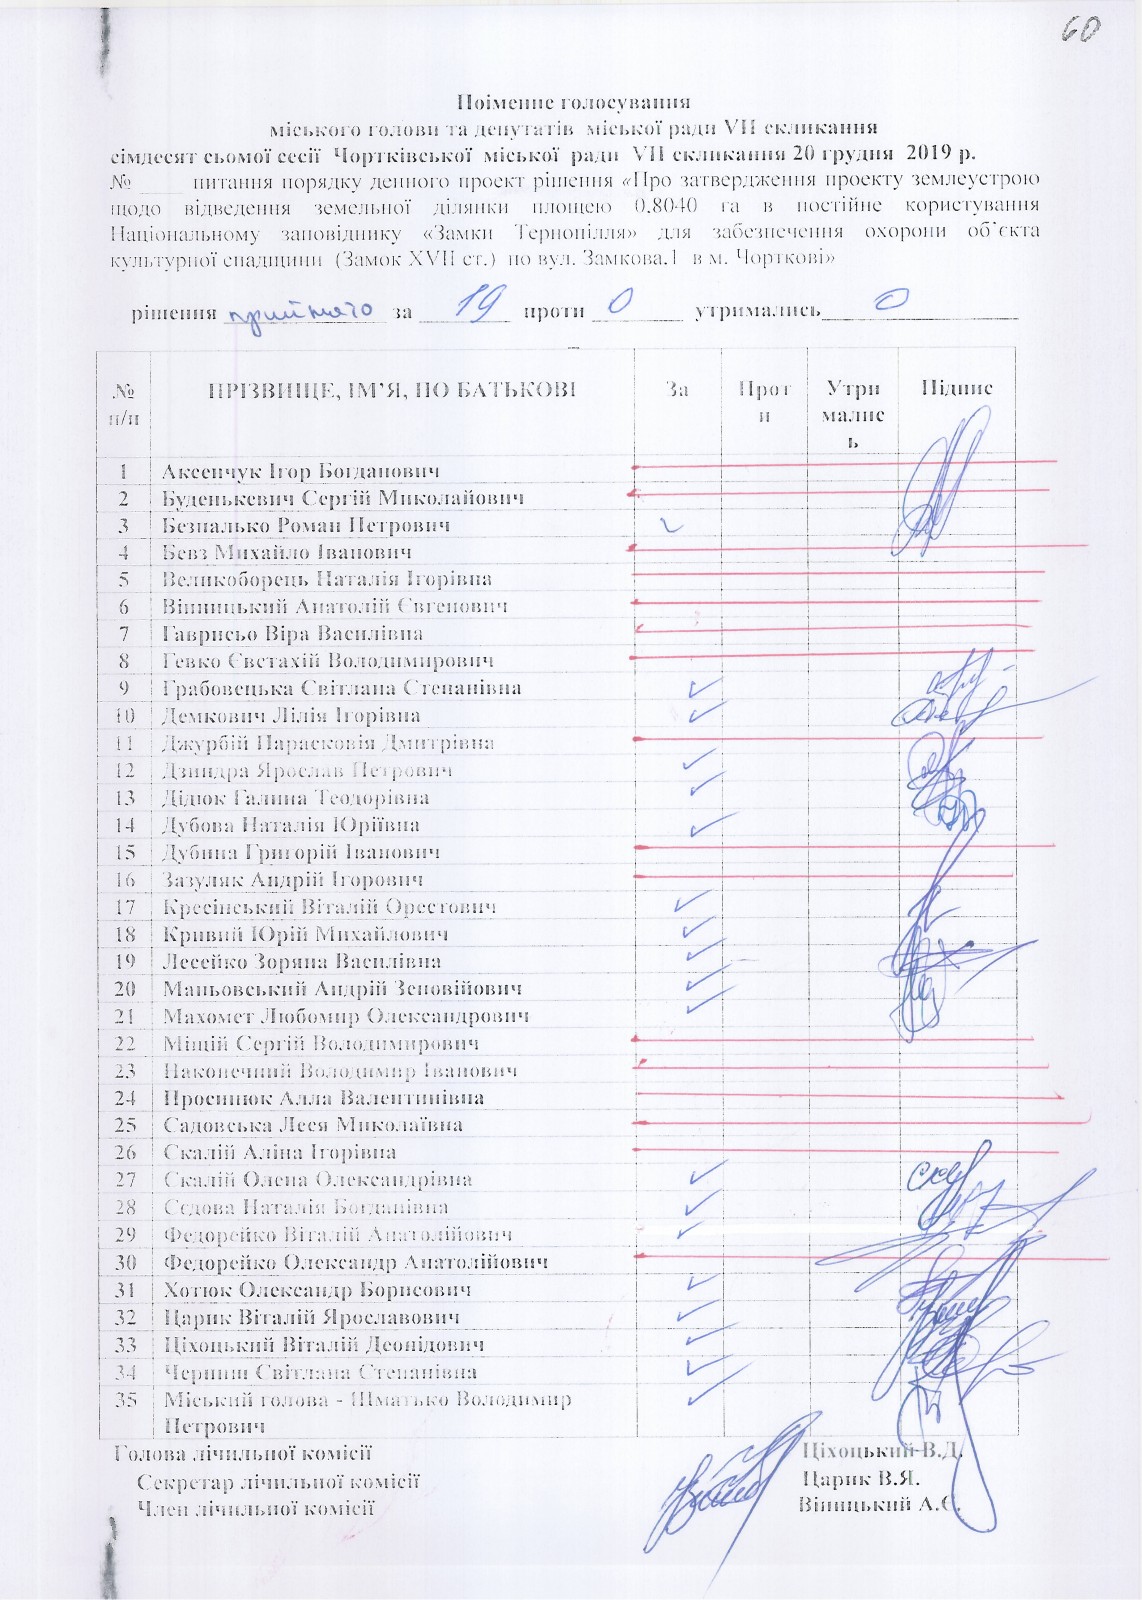 60
Поіменне голосування
міського голови та депутатів міської ради VII скликання
сімдесят сьомої сесії Чортківської міської ради VII скликання 20 грудня 2019 р.
№ ____ питання порядку денного проект рішення «Про затвердження проекту землеустрою
щодо відведення земельної ділянки площею 0,8040 га в постійне користування
Національному заповіднику «Замки Тернопілля» для забезпечення охорони об`єкта
культурної спадщини (Замок XVII ст.) по вул. Замкова,1 в м. Чорткові»
рішення прийнято за 19 проти 0 утримались 0
№ п/п ПРІЗВИЩЕ, ІМ’Я, ПО БАТЬКОВІ За Проти Утрималиcь Підпис
1 Аксенчук Ігор Богданович
2 Буденькевич Сергій Миколайович
3 Безпалько Роман Петрович
4 Бевз Михайло Іванович
5 Великоборець Наталія Ігорівна
6 Вінницький Анатолій Євгенович
7 Гаврисьо Віра Василівна
8 Гевко Євстахій Володимирович
9 Грабовецька Світлана Степанівна
10 Демкович Лілія Ігорівна
11 Джурбій Парасковія Дмитрівна
12 Дзиндра Ярослав Петрович
13 Дідюк Галина Теодорівна
14 Дубова Наталія Юріївна
15 Дубина Григорій Іванович
16 Зазуляк Андрій Ігорович
17 Кресінський Віталій Орестович
18 Кривий Юрій Михайлович
19 Лесейко Зоряна Василівна
20 Маньовський Андрій Зеновійович
21 Махомет Любомир Олександрович
22 Міщій Сергій Володимирович
23 Наконечний Володимир Іванович
24 Просинюк Алла Валентинівна
25 Садовська Леся Миколаївна
26 Скалій Аліна Ігорівна
27 Скалій Олена Олександрівна
28 Сєдова Наталія Богданівна
29 Федорейко Віталій Анатолійович
30 Федорейко Олександр Анатолійович
31 Хотюк Олександр Борисович
32 Царик Віталій Ярославович
33 Ціхоцький Віталій Деонідович
34 Черниш Світлана Степанівна
35 Міський голова - Шматько Володимир
Петрович
Голова лічильної комісії Ціхоцький В.Д.
Секретар лічильної комісії Царик В.Я.
Член лічильної комісії Вінницький А.Є.